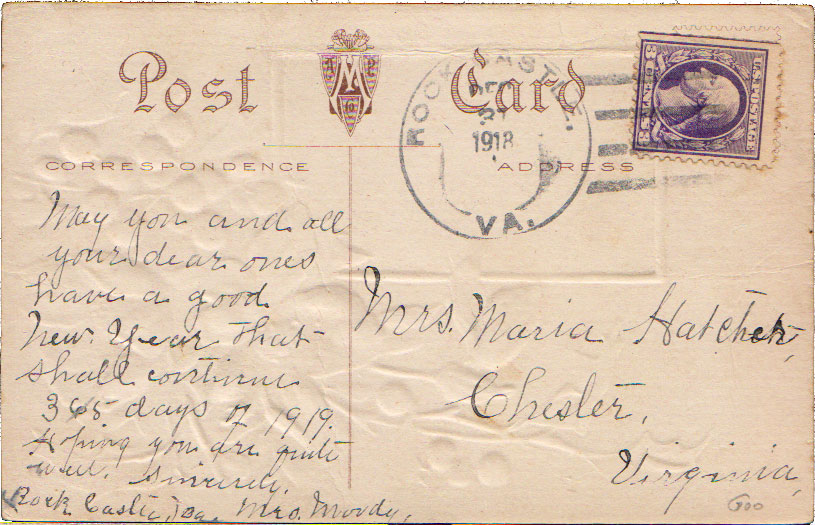 Post Card
CORRESPONDENCE
ADDRESS
ROCK CASTLE.
DEC
31
1918
VA.
U.S. POSTAGE
3 3
May you and all
your dear ones
have a good
New Year that
shall continue
365 days of 1919.
Hoping you are quite
well. Sincerely,
Rock Castle, Va. Mrs. Moody,
Mrs. Maria Hatcher,
Chester,
Virginia,